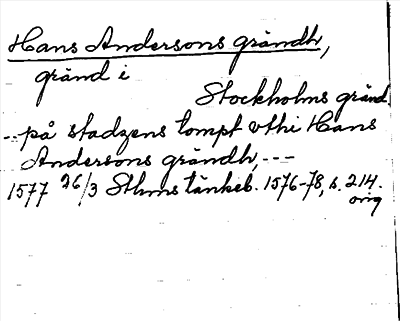 Hans Andersons grändh,
gränd i
Stockholms gränd.
--på stadzens tompt vthi Hans
Andersons grändh,---
1577 26/3 Sthms tänkeb. 1576-78, s. 214.
orig